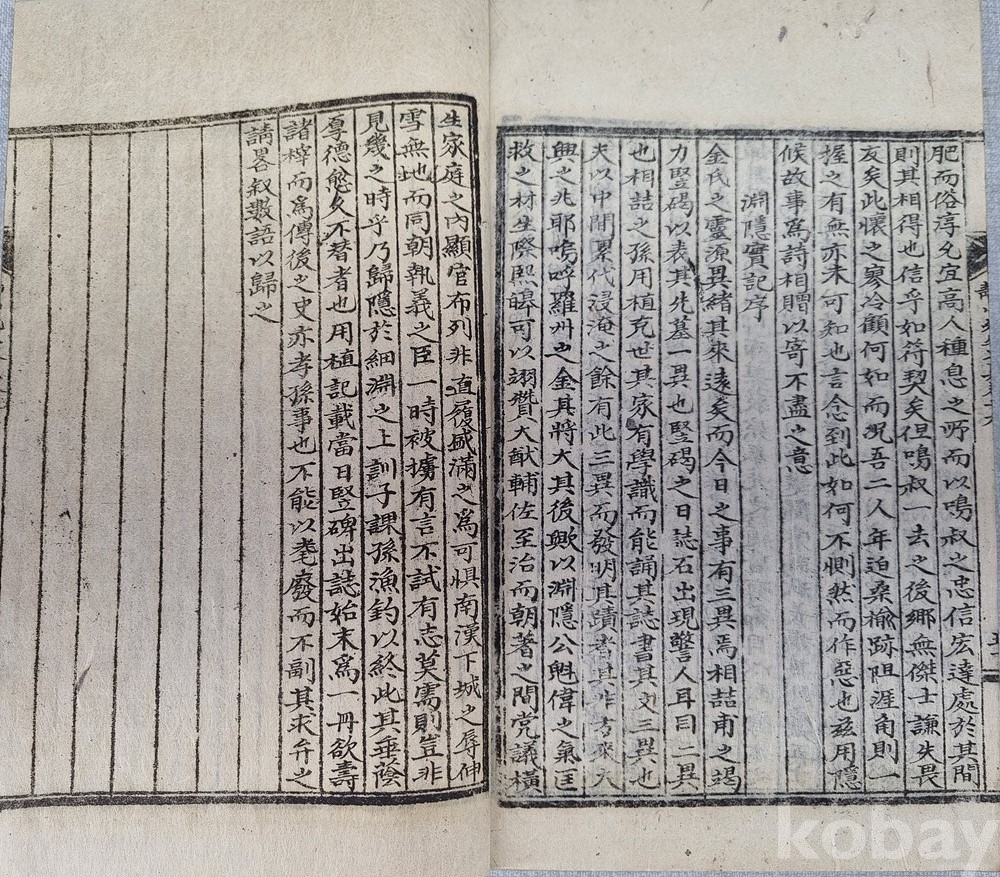 肥而俗淳允宜高人種息之所而以鳴叔之忠信宏達處於其間
則其相得也信乎如符契矣但鳴叔一去之後鄉無傑士謙失畏
友矣此懷之寥冷顧何如而況吾二人年迫桑榆跡阻涯角則一
握之有無亦未可知也言念到此如何不惻然而作惡也玆用隱
候故事爲詩相贈以寄不盡之意
淵隱實記序
金氏之靈源異緖其來遠矣而今日之事有三異焉相喆甫之竭
力竪碣以表其先墓一異也竪碣之日誌石出現警人耳目二異
也相喆之孫用植克世其家有學識而能誦其誌書其文三異也
夫以中間累代浸淹之餘有此三異而發明其蹟者其非方來大
興之兆耶嗚呼羅州之金其將大其後歟以淵隱公魁偉之氣匡
救之材生際熙皥可以翊贊大猷輔佐至治而朝著之間党議橫
生家庭之內顯官布列非直履盛滿之爲可惧南漢下城之辱伸
雪無地而同朝執義之臣一時被擄有言不試有志莫霱則豈非
見幾之時乎乃歸隱於細淵之上訓子課孫漁釣以終此其垂蔭
厚德愈久不替者也用植記載當日竪碑出誌始末爲一冊欲壽
諸梓而爲傳後之史亦孝孫事也不能以耄廢而不副其求弁之
請畧叙數語以歸之
kobay